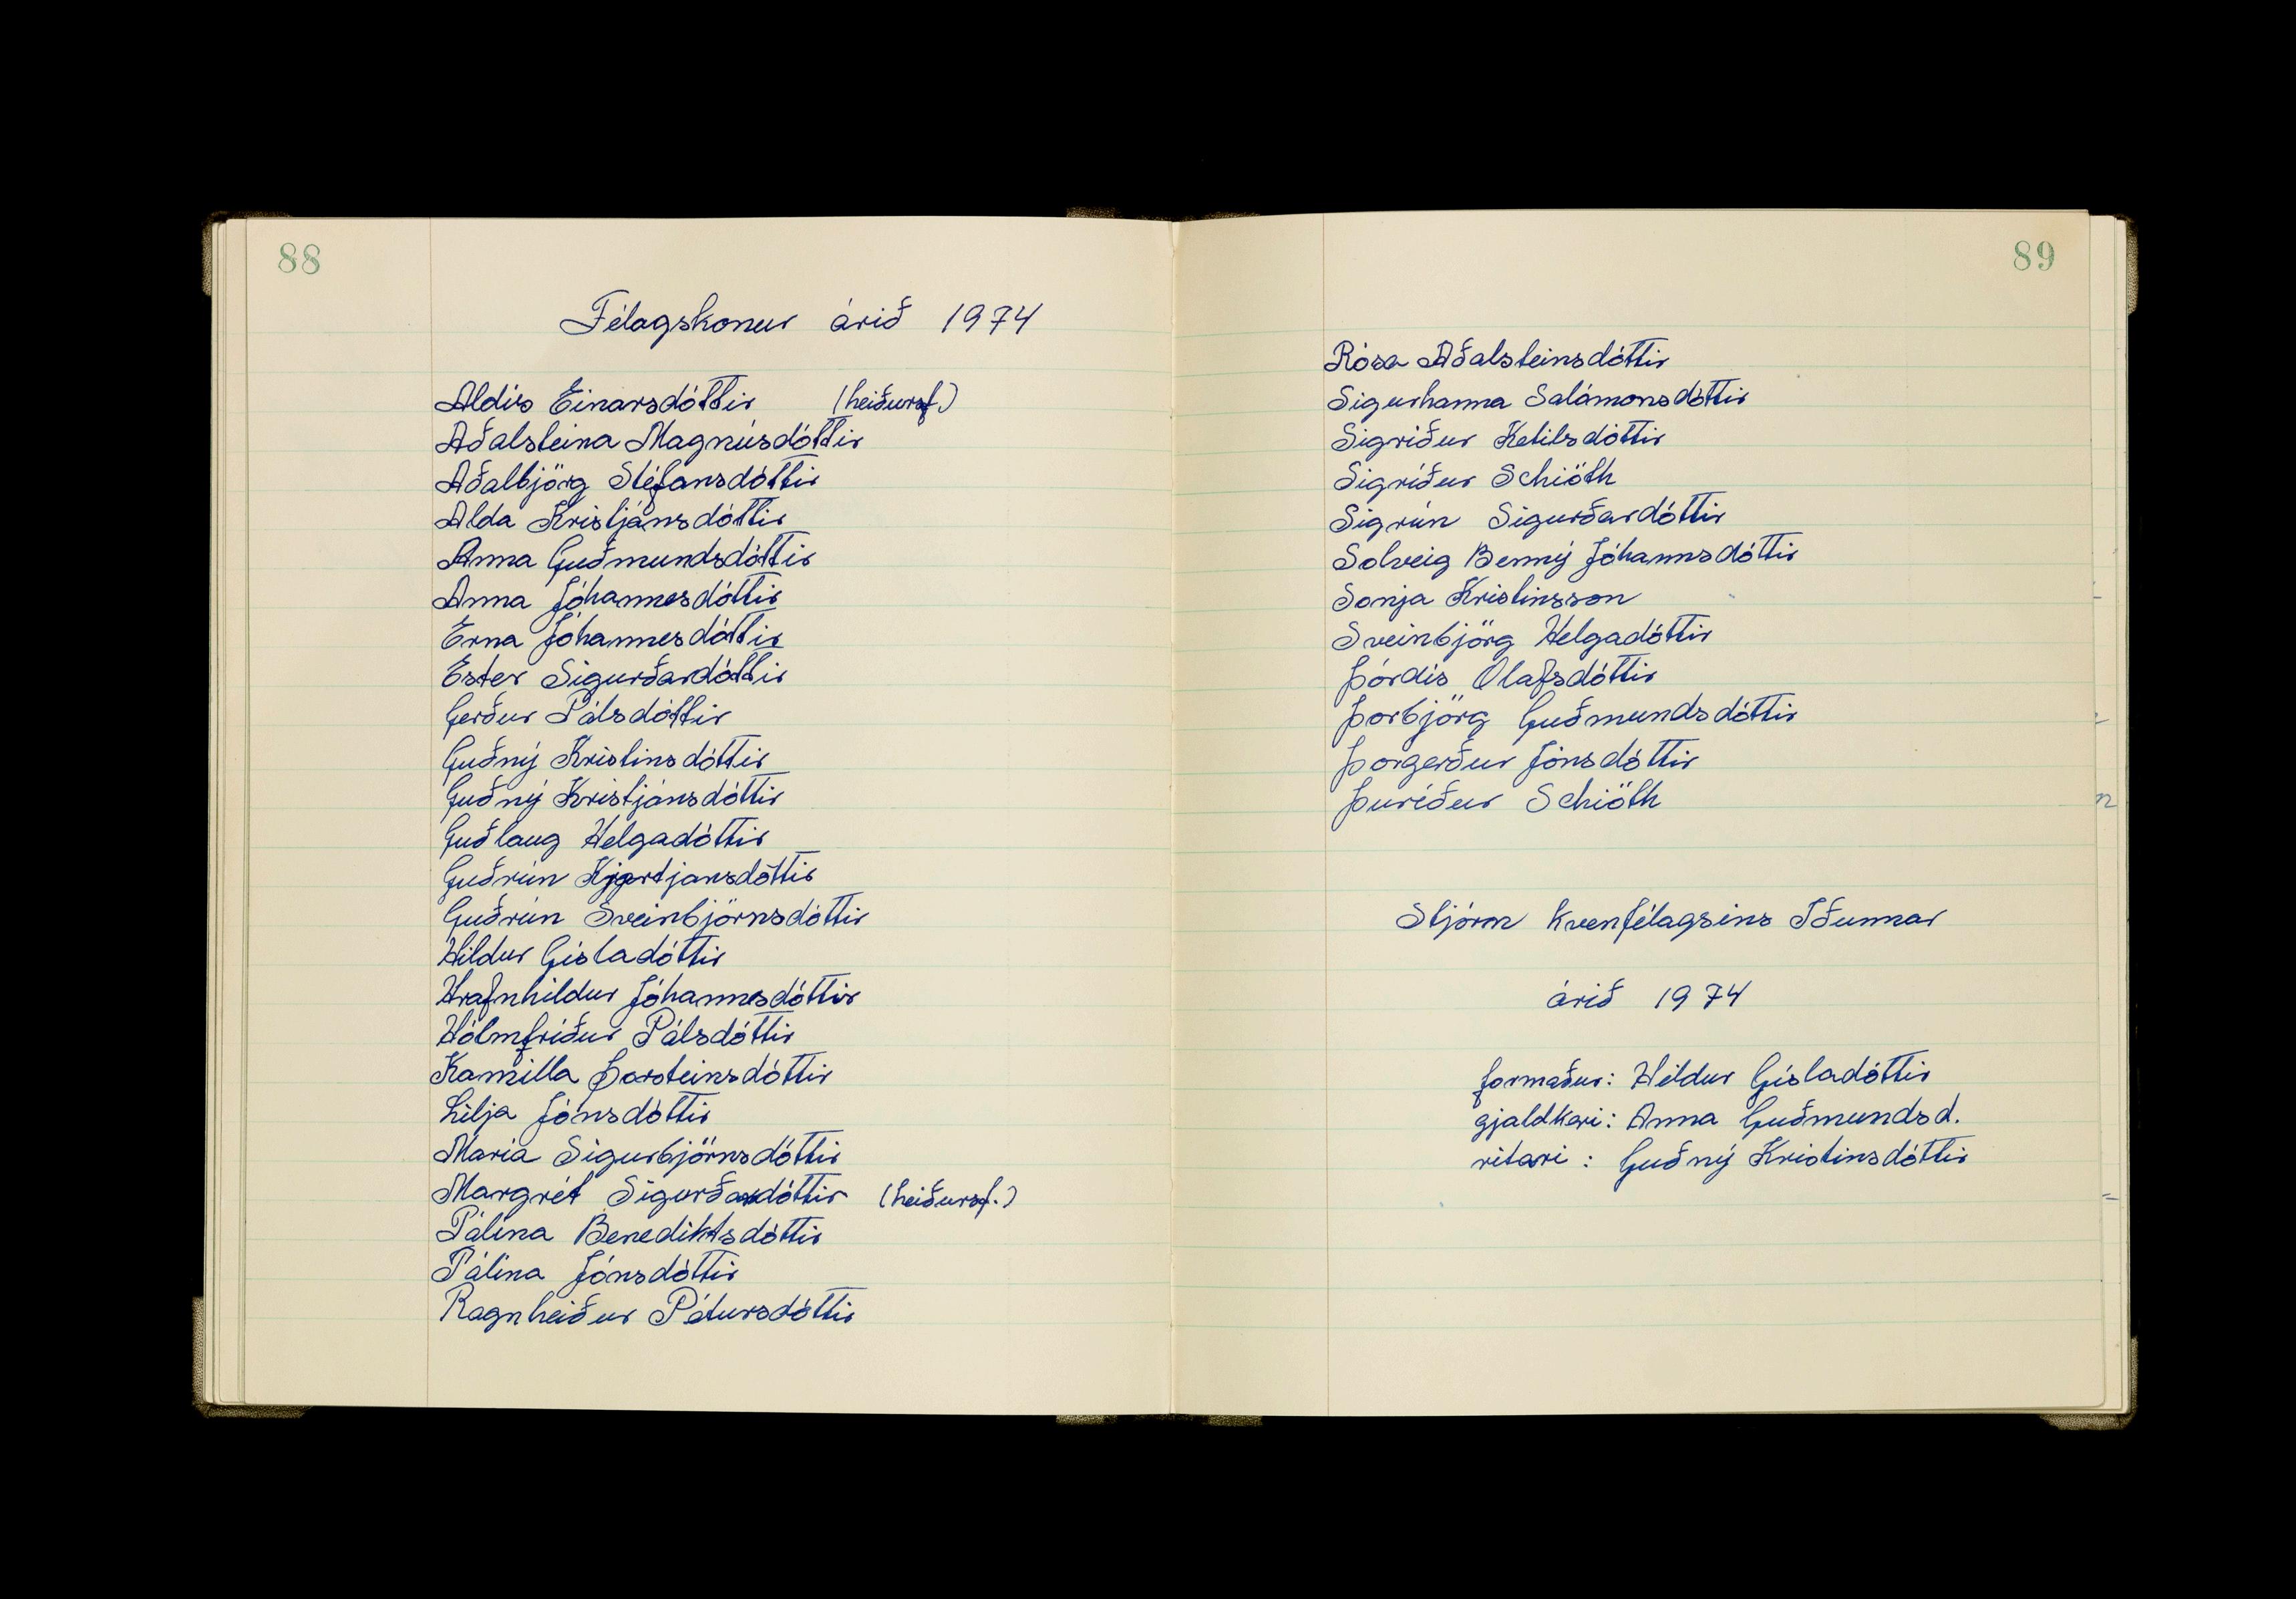 88
Félagskonur árið 1974
Aldís Einarsdóttir (heiðursf.)
Aðalsteina Magnúsdóttir
Aðalbjörg Stefánsdóttir
Alda Kristjánsdóttir
Anna Guðmundsdóttir
Anna Jóhannesdóttir
Erna Jóhannesdóttir
Ester Sigurðardóttir
Gerður Pálsdóttir
Guðný Kristinsdóttir
Guðný Kristjánsdóttir
Guðlaug Helgadóttir
Guðrún
Guðrún Sveinbjörnsdóttir
Hildur Gísladóttir
Hrafnhildur Jóhannesdóttir
Hólmfríður Pálsdóttir
Kamilla Þorsteinsdóttir
Lilja Jónsdóttir
María Sigurbjörnsdóttir
Margrét Sigurðardóttir (heiðursf.)
Pálína Benediktsdóttir
Pálína Jónsdóttir
Ragnheiður Pétursdóttir
89
Rósa Aðalsteinsdóttir
Sigurhanna Salámonsdóttir
Sigríður Ketilsdóttir
Sigríður Schiöth
Sigrún Sigurðardóttir
Solveig Benný Jóhannsdóttir
Sonja Kristinsson
Sveinbjörg Helgadóttir
Þórdís Ólafsdóttir
Þorbjörg Guðmundsdóttir
Þorgerður Jónsdóttir
Þuríður Schiöth
Stjórn kvenfélagsins Iðunnar
árið 1974
formaður: Hildur Gísladóttir
gjaldkeri: Anna Guðmundsd.
ritari : Guðný Kristinsdóttir